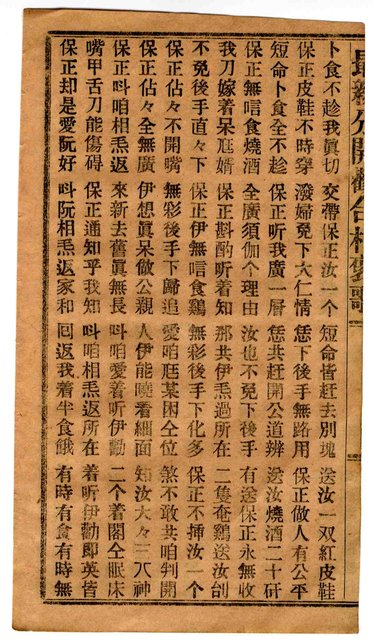 最新分開勸合相褒歌
卜食不趁我眞切 交帶保正汝一个 短命皆赶去別塊 送汝一双紅皮鞋
保正皮鞋不時穿 潑婦免下大仁情 恁下後手無路用 保正做人有公平
短命卜食全不趁 保正听我廣一層 恁共赶開公道辨 送汝燒酒二十矸
保正無唁食燒酒 全廣須伽个理由 汝也不免下後手 有送保正永無收
我刀嫁着呆尫婿 保正斟酌听着知 那共伊𤆬過所在 二隻奄鷄送汝刣
不免後手直々下 保正伊無唁食鷄 無彩後手下化多 保正不挿汝一个
保正佔々不開嘴 無彩後手下歸追 愛咱尫某困仝位 煞不敢共咱判開
保正佔々全無廣 伊想眞呆做公親 人伊能曉看細面 知汝大々三八神
保正呌咱相𤆬返 來新去舊眞無長 呌咱愛着听伊勸 二个着閣仝眠床
嘴甲舌刀能傷碍 保正通知乎我知 呌咱相𤆬返所在 着听伊勸即英皆
保正却是愛阮好 呌阮相𤆬返家和 囘返我着半食餓 有時有食有時無